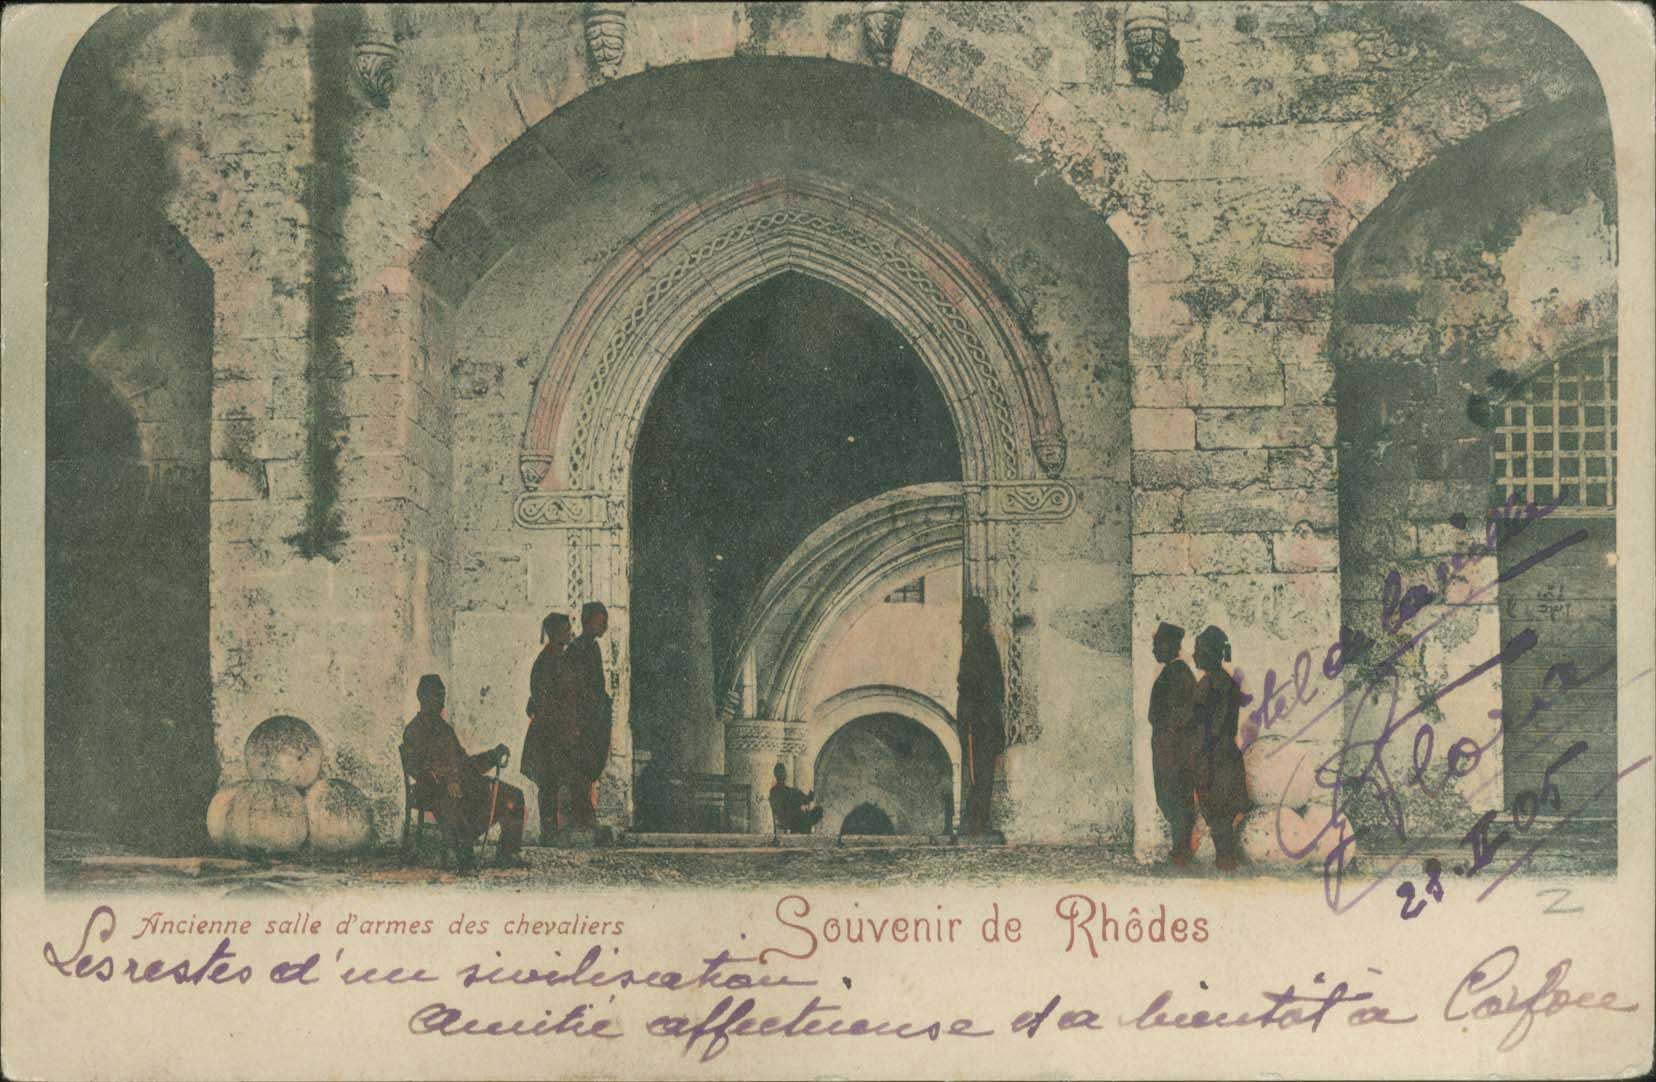 Ancienne salle d'armes des chevaliers
Souvenir de Rhôdes
Les restes d'un sivilisation.
Amitié affectueuse et a bientôt à Corfou
28.II.05
2